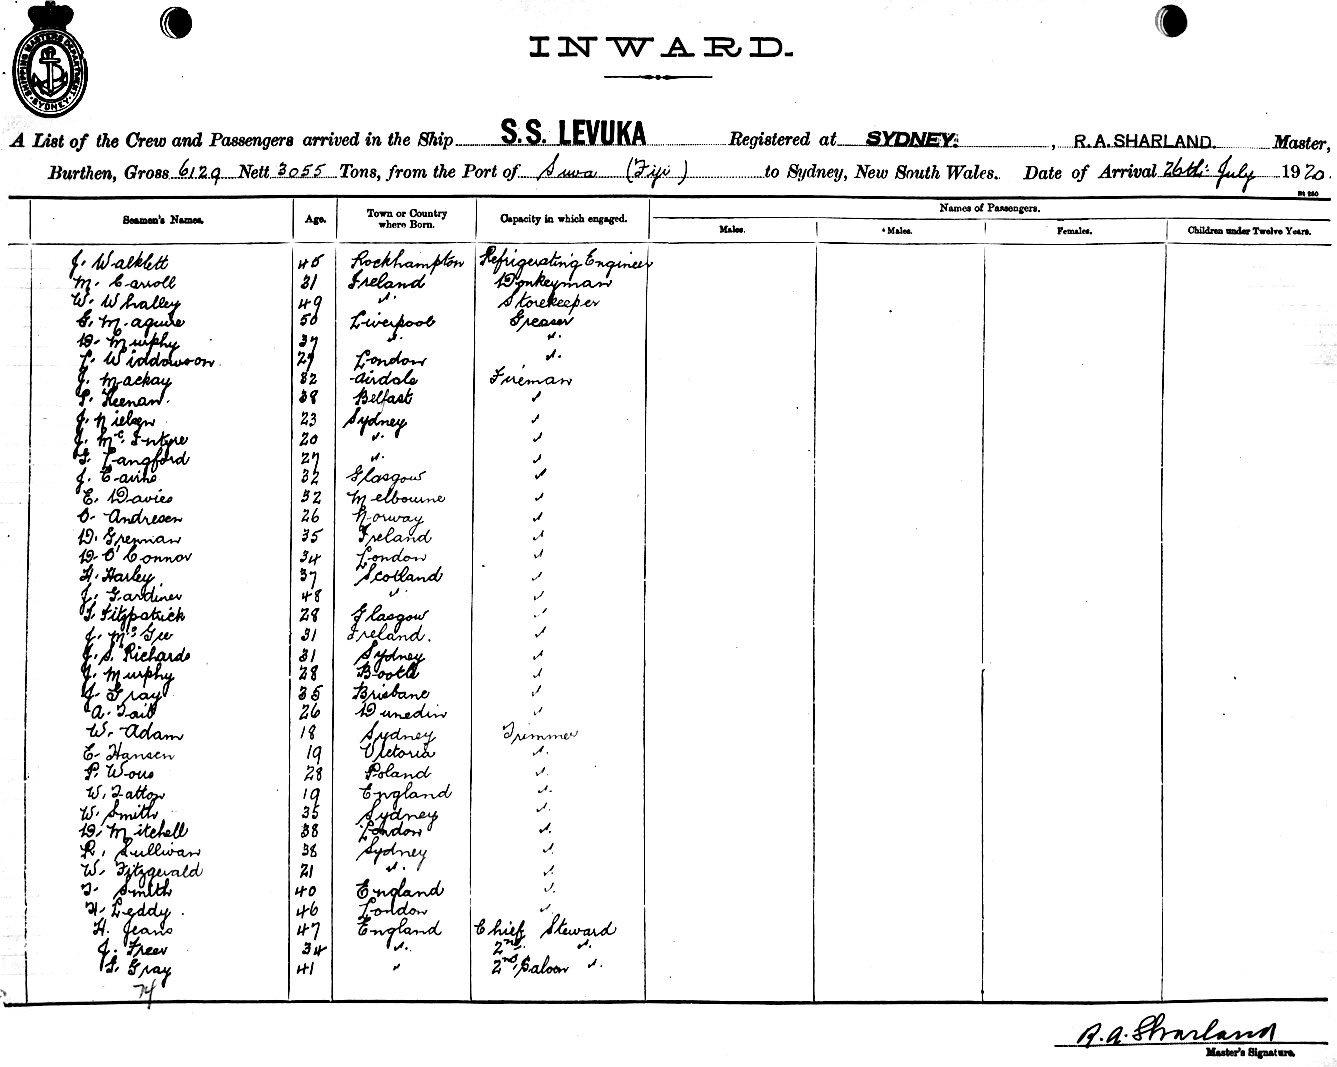 SHIPPING MASTERS DEPARTMENT SYDNEY
INWARD.
A List of the Crew and Passengers arrived in the Ship S.S. LEVUKA Registered at SYDNEY. , R.A. SHARLAND. Master,
Burthen, Gross 6129 Nett 3055 Tons, from the Port of Suva (Fiji) to Sydney, New South Wales. Date of Arrival 26th July 1920.
Seamen's Names. Age. Town or Country where Born. Capacity in which engaged. Names of Passengers.
Males. Males. Females. Children under Twelve Years.
J. Walklett 45 Rockhampton Refrigerating Engineer
M. Carroll 31 Ireland Donkeyman
W. Whalley 49 " Storekeeper
G. Maguire 50 Liverpool Greaser
D. Murphy 37 " "
T. Widdowson 27 London "
J. Mackay 32 Airdale Fireman
P. Keenan. 38 Belfast "
J. Nielsen 23 Sydney "
J. McIntyre 20 " "
G. Langford 27 " "
J. Cairns 32 Glasgow "
E. Davies 52 Melbourne "
O. Andresen 26 Norway "
D. Grennan 35 Ireland "
D. O'Connor 34 London "
H. Harley 37 Scotland "
J. Gardiner 48 " "
T. Fitzpatrick 28 Glasgow "
J. McGee 31 Ireland. "
J. S. Richards 31 Sydney "
J. Murphy 28 Bootle "
J. Gray 35 Brisbane "
A. Tait 26 Dunedin "
W. Adam 18 Sydney Trimmer
C. Hansen 19 Victoria "
P. Wous 28 Poland "
W. Tatton 19 England "
W. Smith 35 Sydney "
D. Mitchell 38 London "
R. Sullivan 38 Sydney "
W. Fitzgerald 21 " "
T. Smith 40 England "
H. Leddy. 46 London "
H. Jeans 47 England Chief Steward
J. Freer 34 " 2nd "
G. Gray 41 " 2nd Saloon "
74
R. A. Sharland
Master's Signature.